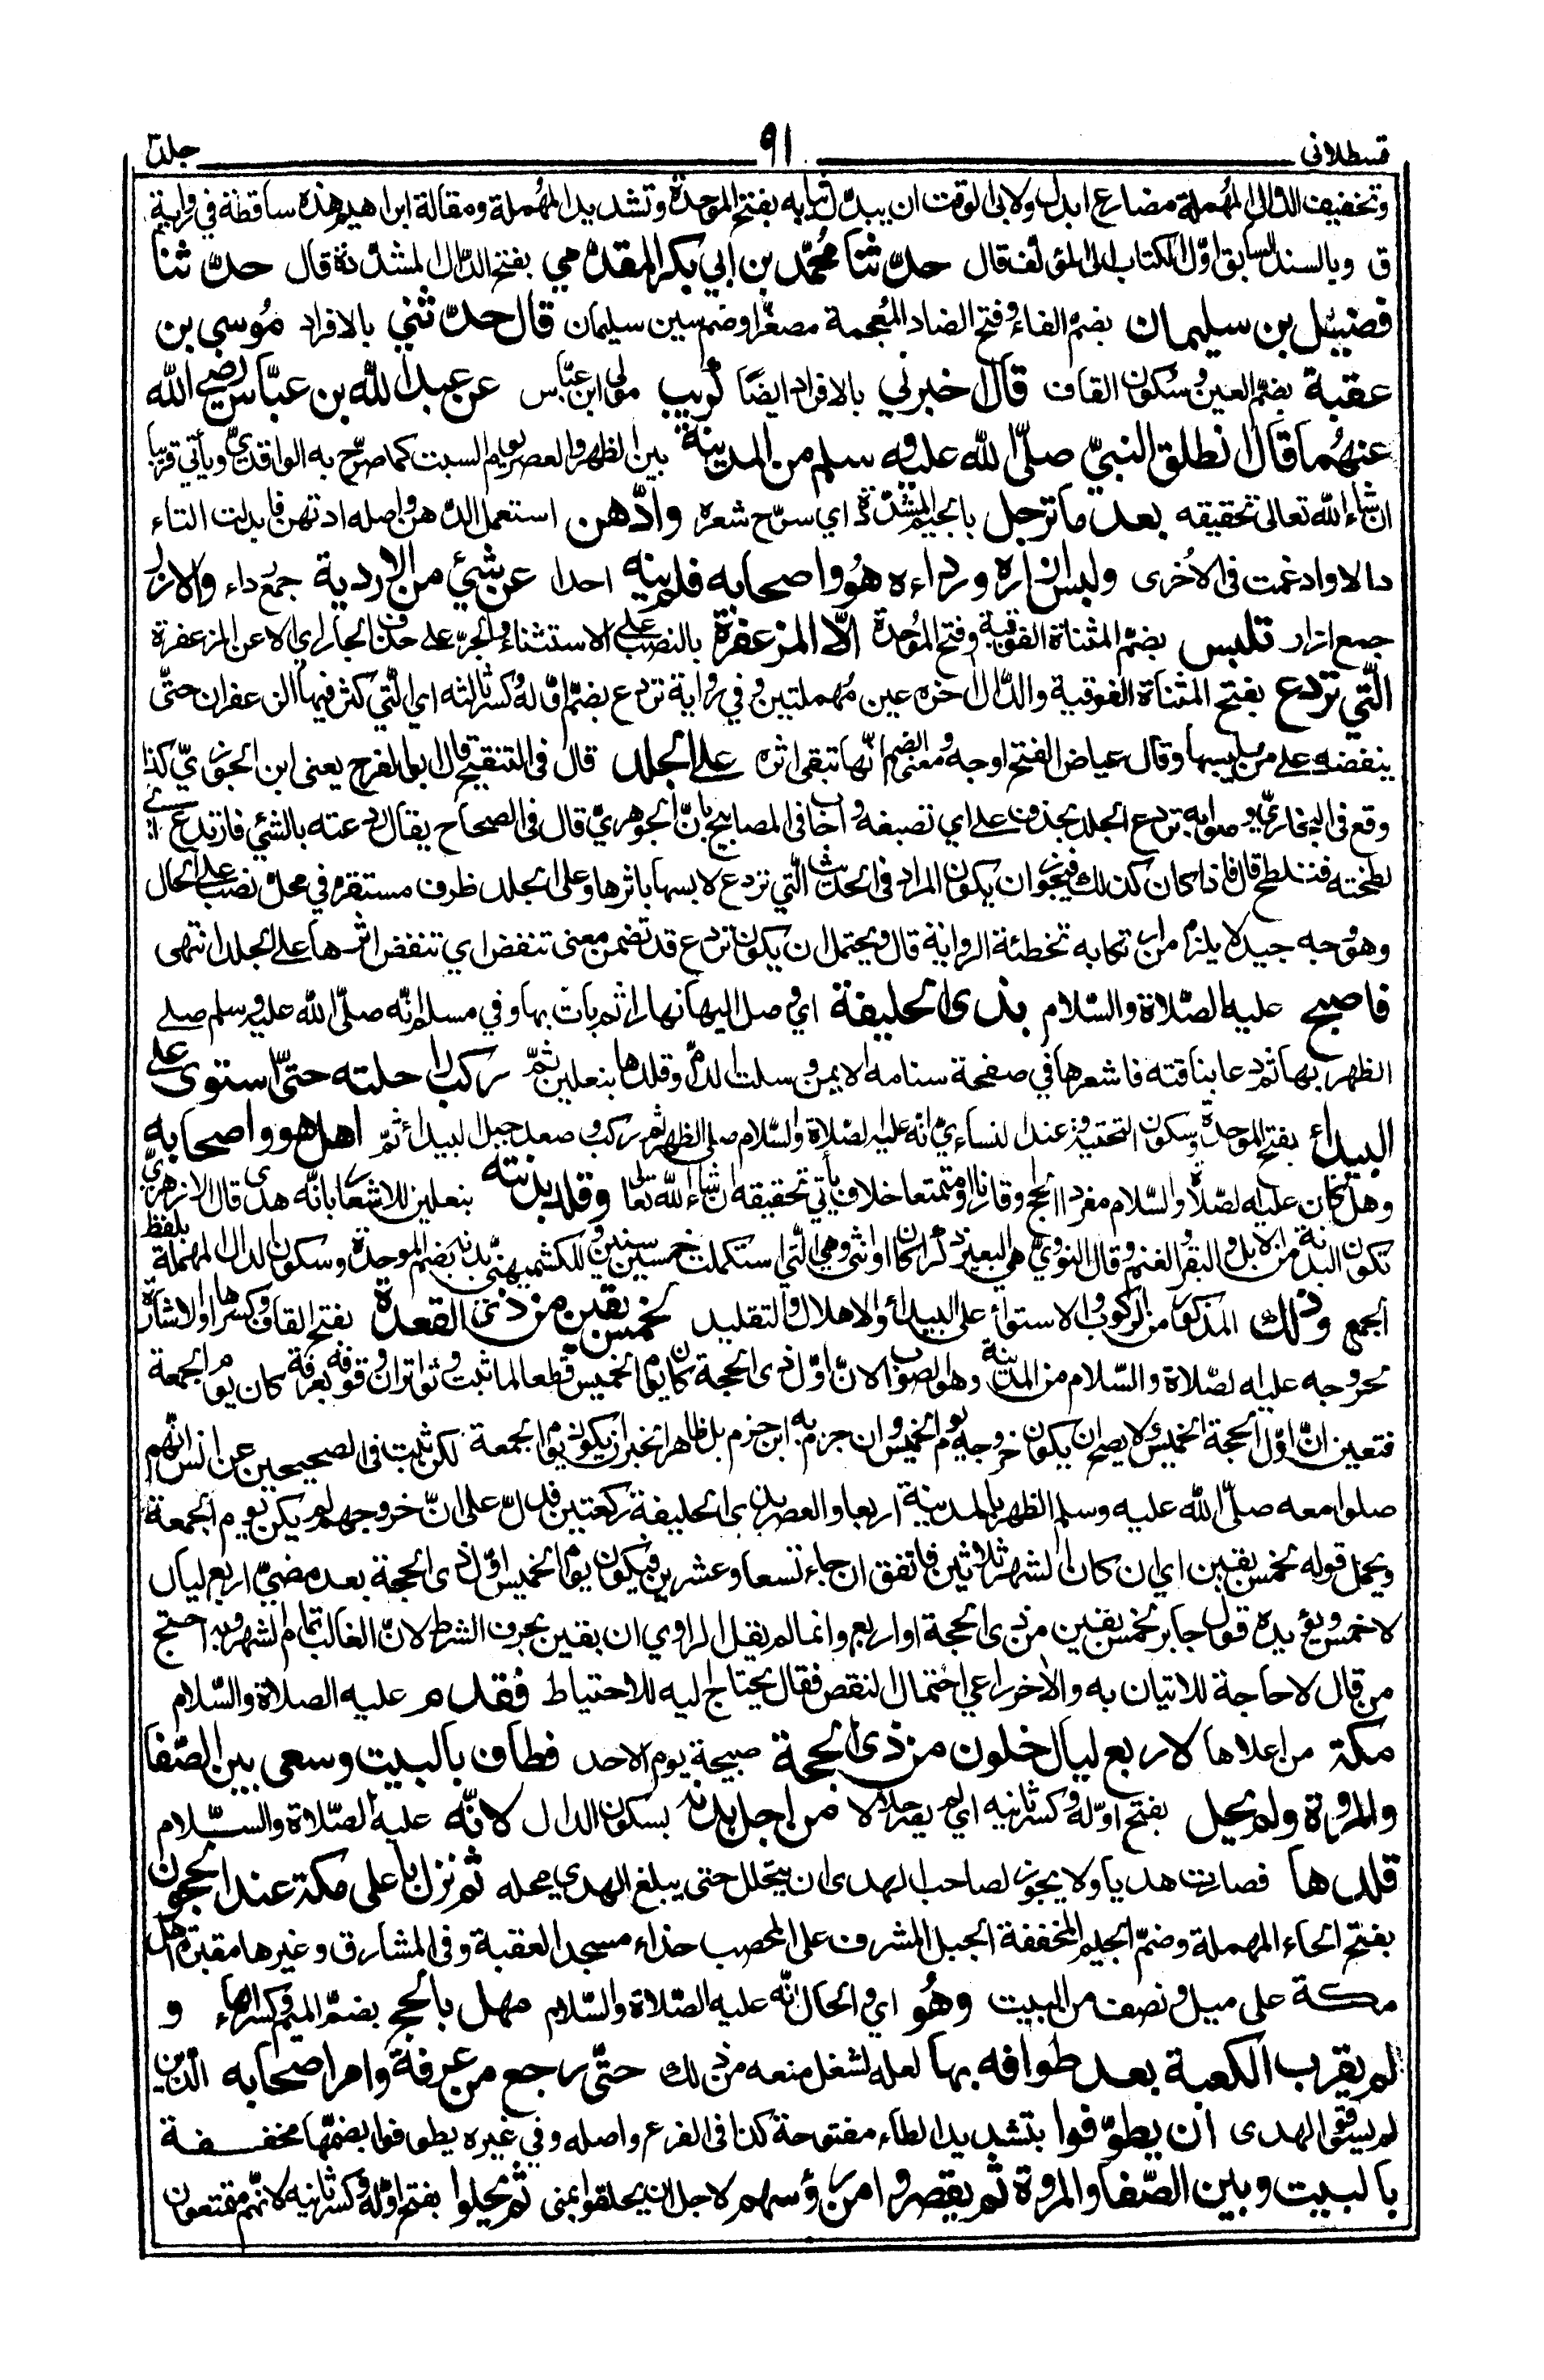 قسطلاني ٩١ جلد٣
وتخفيف الدال المهملة مضارع ابدل ولابى الوقت ان يبدل ثيابه بفتح الموحدة وتشديد المهملة ومقالة ابراهيم هذه ساقطة في رواية
ق وبالسند السابق اوّل الكتاب الى المؤلف قال حدّثنا محمّد بن ابي بكر المقدّمي بفتح الدّال المشدّدة قال حدّثنا
فضيل بن سليمان بضمّ الفاء وفتح الضاد المُعجمة مصغّرا وضم سين سليمان قال حدّثني بالافراد مُوسى بن
عقبة بضمّ العين وسُكون القاف قال اخبرني بالافراد ايضًا كُريب مولى ابن عبّاس عن عبد الله بن عبّاس رضي الله
عنهُما قال انطلق النبيّ صلّى الله عليه وسلم من المدينة بين الظهر والعصر يوم السبت كما صرّح به الواقديّ ويأتي قريبا
ان شاء الله تعالى تحقيقه بعد ما ترجل بالجيم المشدّدة اي سرّح شعره وادّهن استعمل الدّهن واصله ادتهن فابدلت التاء
دالا وادغمت فى الاُخرى ولبس ازاره ورداءه هُو واصحابه فلم ينه احدا عن شيئ من الاردية جمع رداء والازر
جمع ازار تلبس بضمّ المثناة الفوقية وفتح الموُحدة الّا المزعفرة بالنصب على الاستثناء والجرّ على حذف الجار اي الا عن المزعفرة
الّتي تردع بفتح المثناة الفوقية والدّال اخره عين مُهملتين وفي رواية تردع بضمّ اوّله وكسر ثالثه اي الّتي كثر فيها الزعفران حتّى
ينفضه على من يلبسها وقال عياض الفتح اوجه ومعنى الضم انّها تبقى اثره على الجلد قال فى التنقيح قال ابو الفرج يعنى ابن الجوزيّ كذا
وقع فى البخاريّ وصوابه تردع الجلد بحذف على اي تصبغه واجاب فى المصابيح بانّ الجوهريّ قال فى الصحاح يقال ردعته بالشئي فارتدع اي
لطخته فتلطخ قال فاذا كان كذلك فيجوز ان يكون المراد فى الحديث الّتي تردع لابسها باثرها وعلى الجلد ظرف مستقر في محلّ نصب على الحال
وهو وجه جيد لا يلزم من ارتكابه تخطئة الرواية قال ويحتمل ان يكون تردع قد تضمن معنى تنفض اي تنفض اثرها على الجلد انتهى
فاصبح عليه الصّلاة والسّلام بذى الحليفة اي وصل اليها نهارا ثم بات بها وفي مسلم انّه صلّى الله عليه وسلم صلى
الظهر بها ثم دعا بناقته فاشعرها في صفحة سنامه الايمن وسلت الدمّ وقلدها بنعلين ثمّ ركب راحلته حتّى استوى على
البيداء بفتح الموحدة وسكون التحتية وعند النساءيّ انه عليه الصّلاة والسّلام صلى الظهر ثم ركب وصعد جبل البيداء ثمّ اهل هو واصحابه
وهل كان عليه الصلاة والسّلام مفردا الحج او قارنا او متمتعا خلاف يأتي تحقيقه ان شاء الله تعالى وقلد بدنته بنعلين للاشعار بانّه هدى قال الازهريّ
تكون البدنة من الابل والبقر والغنم وقال النوويّ هي البعير ذكرا كان او انثى وهي الّتي استكملت خمس سنين وللكشميهنّي بدنه بضم الموحدة وسكون الدال المهملة بلفظ
الجمع وذلك المذكور من الركوب والاستواء على البيداء والاهلال والتقليد لخمس بقين من ذى القعدة بفتح القاف وكسرها او الاشارة
لخروجه عليه الصّلاة والسّلام من المدينة وهو الصواب لانّ اوّل ذى الحجة كان يوم الخميس قطعا لما ثبت وتواتر ان وقوفه بعرفة كان يوم الجمعة
فتعين انّ اوّل الحجة الخميس ولا يصح ان يكون خروجه يوم الخميس وان جزم به ابن حزم بل ظاهر الخبر ان يكون يوم الجمعة لكن ثبت فى الصحيحين عن انس انّهم
صلوا معه صلّى الله عليه وسلم الظهر بالمدينة اربعا والعصر بذى الحليفة ركعتين فدلّ على انّ خروجهم لم يكن يوم الجمعة
ويحمل قوله لخمس بقين اي ان كان الشهر ثلاثين فاتفق ان جاء تسعا وعشرين فيكون يوم الخميس اوّل ذى الحجة بعد مضيّ اربع ليال
لا خمس ويؤيده قول جابر لخمس بقين من ذى الحجة او اربع وانما لم يقل الراوي ان بقين بحرف الشرط لانّ الغالب تمام الشهر وبه احتج
من قال لا حاجة للاتيان به والاخر راعى احتمال النقص فقال يحتاج اليه للاحتياط فقدم عليه الصلاة والسّلام
مكة من اعلاها لاربع ليال خلون من ذى الحجة صبيحة يوم الاحد فطاف بالبيت وسعى بين الصّفا
والمروة ولم يحل بفتح اوّله وكسر ثانيه اي لم يصر حلالا من اجل بدنه بسكون الدال لانّه عليه الصّلاة والسّلام
قلدها فصارت هديا ولا يجوز لصاحب الهدى ان يتحلل حتى يبلغ الهدي محله ثم نزل باعلى مكة عند الحجون
بفتح الحاء المهملة وضمّ الجيم المخففة الجبل المشرف على المحصب حذاء مسجد العقبة وفى المشارق وغيرها مقبرة اهل
مكة على ميل ونصف من البيت وهُو اي والحال انّه عليه الصّلاة والسّلام مهل بالحج بضمّ الميم وكسر الهاء و
لم يقرب الكعبة بعد طوافه بها لعله لشغل منعه من ذلك حتّى رجع من عرفة وامر اصحابه الّذين
لم يسقوا الهدى ان يطوّفوا بتشديد الطاء مفتوحة كذا فى الفرع واصله وفي غيره يطوفوا بضمّها مخففة
بالبيت وبين الصّفا والمروة ثم يقصروا من رؤسهم لاجل ان يحلقوا بمنى ثم يحلوا بفتح اوّله وكسر ثانيه لانّهم متمتعون